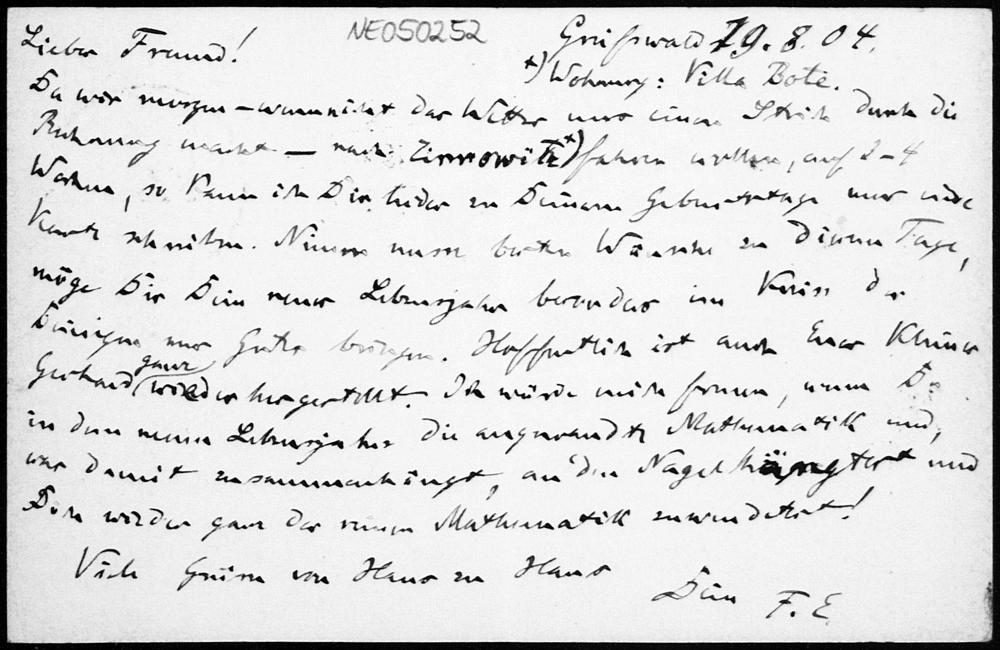 NE050252
Greifswald 19. 8. 04.
Lieber Freund!
+) Wohnung: Villa Bote.
Da wir morgen – wenn nicht das Wetter uns einen Strich durch die
Rechnung macht – nach Zinnowitz +) fahren wollen, auf 3–4
Wochen, so kann ich Dir leider zu Deinem Geburtstage nur eine
Karte schreiben. Nimm unsre besten Wünsche zu diesem Tage,
möge Dir Dein neues Lebensjahr besonders im Kreise der
Deinigen nur Gutes bringen. Hoffentlich ist auch Euer kleiner
Gerhard ganz wiederhergestellt. Ich würde mich freuen, wenn Du
in dem neuen Lebensjahre die angewandte Mathematik und,
was damit zusammenhängt, an den Nagel hängtest und
Dich wieder ganz der reinen Mathematik zuwendetest!
Viele Grüsse von Haus zu Haus
Dein F. E.